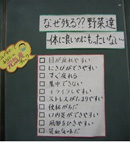 なぜ残る??野菜達
〜体に良いのにもったいない〜
目が疲れやすい
にきびができやすい
すぐ疲れる
集中できない
イライラしやすい
ストレスがたまりやすい
便秘がち
口内炎ができやすい
風邪をひきやすい
貧血気味だ